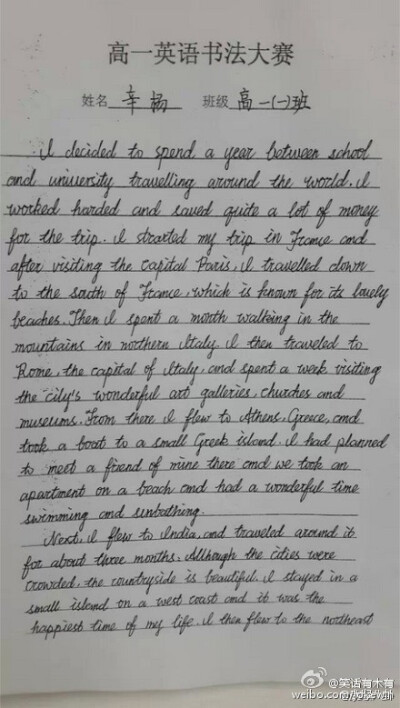 高一英语书法大赛
姓名 辛杨 班级 高一(一)班
I decided to spend a year between school
and university travelling around the world. I
worked harded and saved quite a lot of money
for the trip. I strarted my trip in France and
after visiting the capital Paris, I travelled down
to the south of France, which is known for its lovely
beaches. Then I spent a month walking in the
mountains in northern Italy. I then traveled to
Rome, the capital of Italy, and spent a week visiting
the city's wonderful art galleries, churches and
museums. From there I flew to Athens, Greece, and
took a boat to a small Greek island. I had planned
to meet a friend of mine there and we took an
apartment on a beach and had a wonderful time
swimming and sunbathing.
Next, I flew to India, and traveled around it
for about three months. Although the cities were
crowded, the countryside is beautiful. I stayed in a
small island on a west coast and it was the
happiest time of my life. I then flew to the northeast
@笑话有木有
weibo.com/